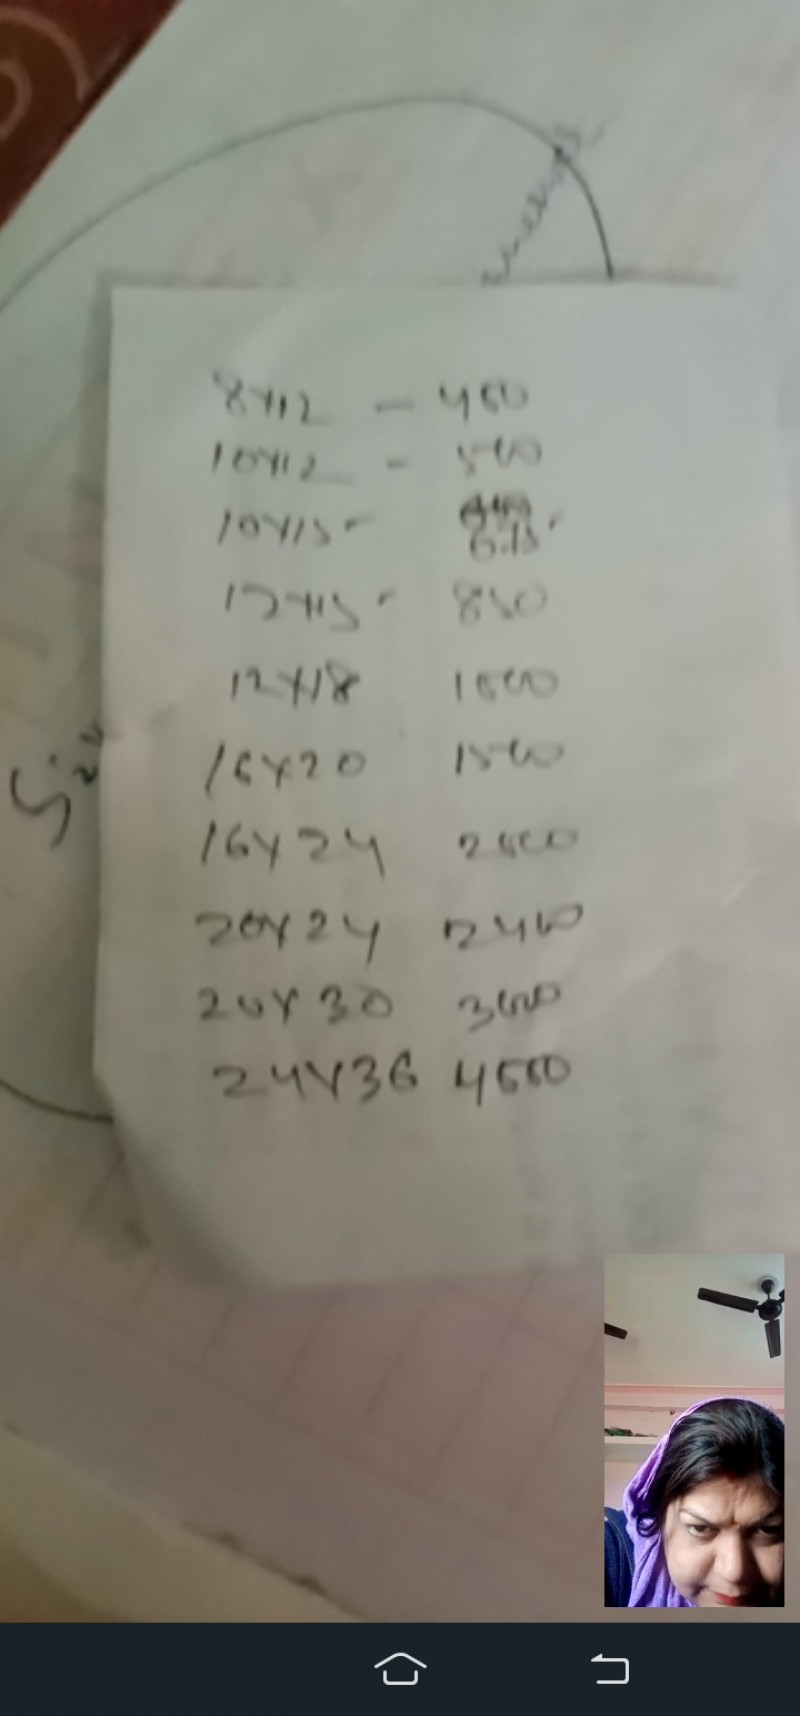 8x12 - 450
10x12 - 500
10x15 -
12x15 - 850
12x18 1000
16x20 1500
16x24 2000
20x24 2400
20x30 3000
24x36 4500
Size